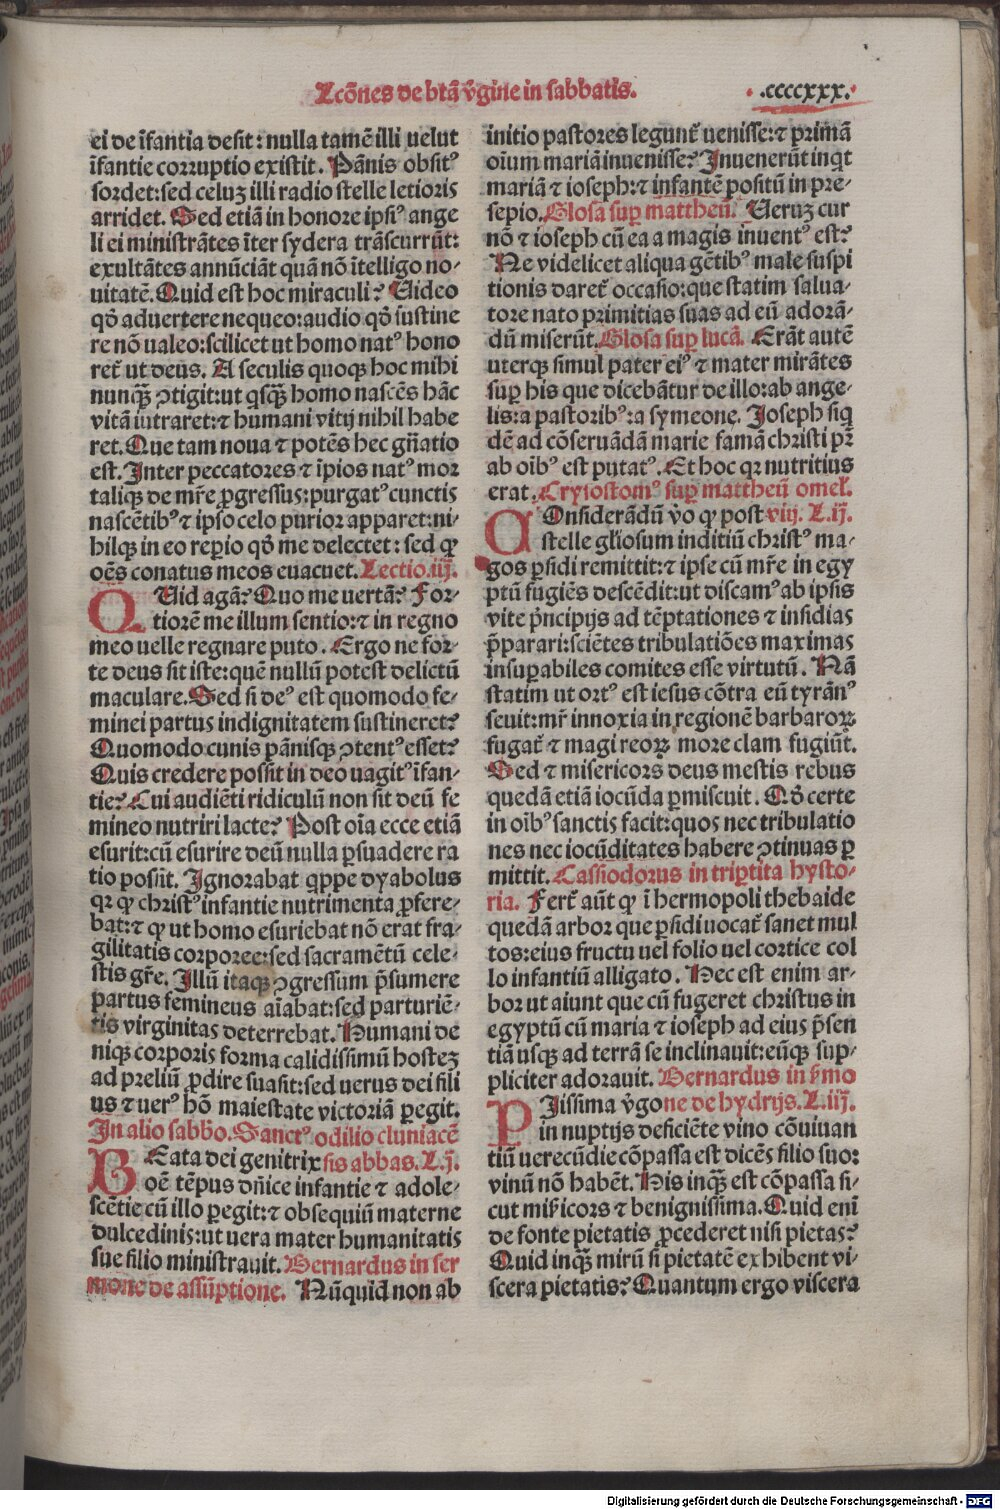 Lcōnes de btā v̄gine in sabbatis.
.ccccxxx.
ei de īfantia desit : nulla tamē illi uelut
īfantie corruptio existit. Pānis obsitꝰ
sordet: sed celuz illi radio stelle letioris
arridet. Sed etiā in honore ipsiꝰ ange
li ei ministrātes īter sydera trāscurrūt:
exultātes annūciāt quā nō ītelligo no-
uitatē. Quid est hoc miraculi? Uideo
qd̄ aduertere nequeo: audio qd̄ iustine
re nō ualeo: scilicet ut homo natꝰ hono
ret̄ ut deus. A seculis quoqꝫ hoc mihi
nunqꝫ̄ ꝯtigit: ut qsqꝫ̄ homo nascēs hāc
vitā intraret: ⁊ humani vitij nihil habe
ret. Que tam noua ⁊ potēs hec gn̄atio
est. Inter peccatores ⁊ īpios natꝰ mor
taliqꝫ de mr̄e ꝓgressus: purgatꝰ cunctis
nascētibꝰ ⁊ ipso celo purior apparet: ni-
hilqꝫ in eo reꝑio qd̄ me delectet : sed ꝙ
oēs conatus meos euacuet. Lectio.iij.
QUid agā? Quo me uertā? For-
tiorē me illum sentio: ⁊ in regno
meo uelle regnare puto . Ergo ne for-
te deus sit iste: quē nullū potest delictū
maculare. Sed si deꝰ est quomodo fe-
minei partus indignitatem sustineret?
Quomodo cunis pānisqꝫ ꝯtentꝰ esset?
Quis credere possit in deo uagitꝰ īfan-
tie? Cui audiēti ridiculū non sit deū fe
mineo nutriri lacte? Post oīa ecce etiā
esurit: cū esurire deū nulla ꝑsuadere ra
tio possit. Ignorabat qꝑpe dyabolus
qꝛ ꝙ christꝰ infantie nutrimenta ꝓfere-
bat: ⁊ ꝙ ut homo esuriebat nō erat fra-
gilitatis corporee: sed sacramētū cele-
stis gr̄e. Illū itaqꝫ ꝯgressum p̄sumere
partus femineus aīabat: sed parturiē-
tis virginitas deterrebat. Humani de
niqꝫ corporis forma calidissimū hostez
ad preliū ꝓdire suasit: sed uerus dei fili
us ⁊ uerꝰ hō maiestate victoriā ꝑegit.
In alio sabbo. Sanctꝰ odilio cluniacē
BEata dei genitrix sis abbas. L.j.
oē tēpus dn̄ice infantie ⁊ adole-
scētie cū illo ꝑegit: ⁊ obsequiū materne
dulcedinis: ut uera mater humanitatis
sue filio ministrauit. Bernardus in ser
mone de assūptione. Nūquid non ab
initio pastores legunt̄ uenisse: ⁊ primā
oīum mariā inuenisse? Inuenerūt inqt
mariā ⁊ ioseph: ⁊ infantē positū in pre-
sepio. Glosa suꝑ mattheū. Ueruz cur
nō ⁊ ioseph cū ea a magis inuentꝰ est?
Ne videlicet aliqua gētibꝰ male suspi
tionis daret̄ occasio: que statim salua-
tore nato primitias suas ad eū adorā-
dū miserūt. Glosa suꝑ lucā. Erāt autē
uterqꝫ simul pater eiꝰ ⁊ mater mirātes
suꝑ his que dicebātur de illo: ab ange-
lis: a pastoribꝰ: a symeone. Ioseph siq
dē ad cōseruādā marie famā christi pr̄
ab oībꝰ est putatꝰ. Et hoc qꝛ nutritius
erat. Crysostomꝰ suꝑ mattheū omel̄.
COnsiderādū v̄o ꝙ post viij. L.ij.
stelle gl̄iosum inditiū christꝰ ma-
gos ꝑsidi remittit: ⁊ ipse cū mr̄e in egy
ptū fugiēs descēdit: ut discamꝰ ab ipsis
vite p̄ncipijs ad tēptationes ⁊ insidias
p̄parari: sciētes tribulatiōes maximas
insuꝑabiles comites esse virtutū. Nā
statim ut ortꝰ est iesus cōtra eū tyrānꝰ
seuit: mr̄ innoxia in regionē barbaroꝝ
fugat̄ ⁊ magi reoꝝ more clam fugiūt.
Sed ⁊ misericors deus mestis rebus
quedā etiā iocūda ꝑmiscuit. Qd̄ certe
in oībꝰ sanctis facit: quos nec tribulatio
nes nec iocūditates habere ꝯtinuas ꝑ
mittit. Cassiodorus in triꝑtita hysto-
ria. Fert̄ aūt ꝙ ī hermopoli thebaide
quedā arbor que ꝑsidi uocat̄ sanet mul
tos: eius fructu uel folio uel cortice col
lo infantiū alligato . Hec est enim ar-
bor ut aiunt que cū fugeret christus in
egyptū cū maria ⁊ ioseph ad eius p̄sen
tiā usqꝫ ad terrā se inclinauit: eūqꝫ sup-
pliciter adorauit. Bernardus in s̄mo
PIissima v̄gone de hydrijs. L.iij.
in nuptijs deficiēte vino cōuiuan
tiū uerecūdie cōpassa est dicēs filio suo:
vinū nō habēt. His inqꝫ̄ est cōpassa si-
cut mis̄icors ⁊ benignissima. Quid eni
de fonte pietatis ꝓcederet nisi pietas?
Quid inqꝫ̄ mirū si pietatē exhibent vi-
scera pietatis? Quantum ergo viscera
Digitalisierung gefördert durch die Deutsche Forschungsgemeinschaft - DFG